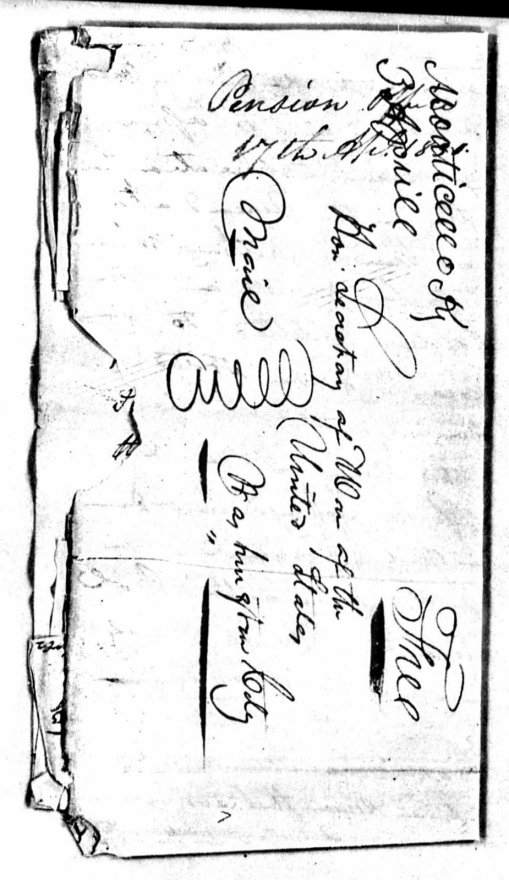 Pension
17th Ap.
Monticello Ky
April
Free
Hon. Secretary of War of the
United States
Mail
Washington City